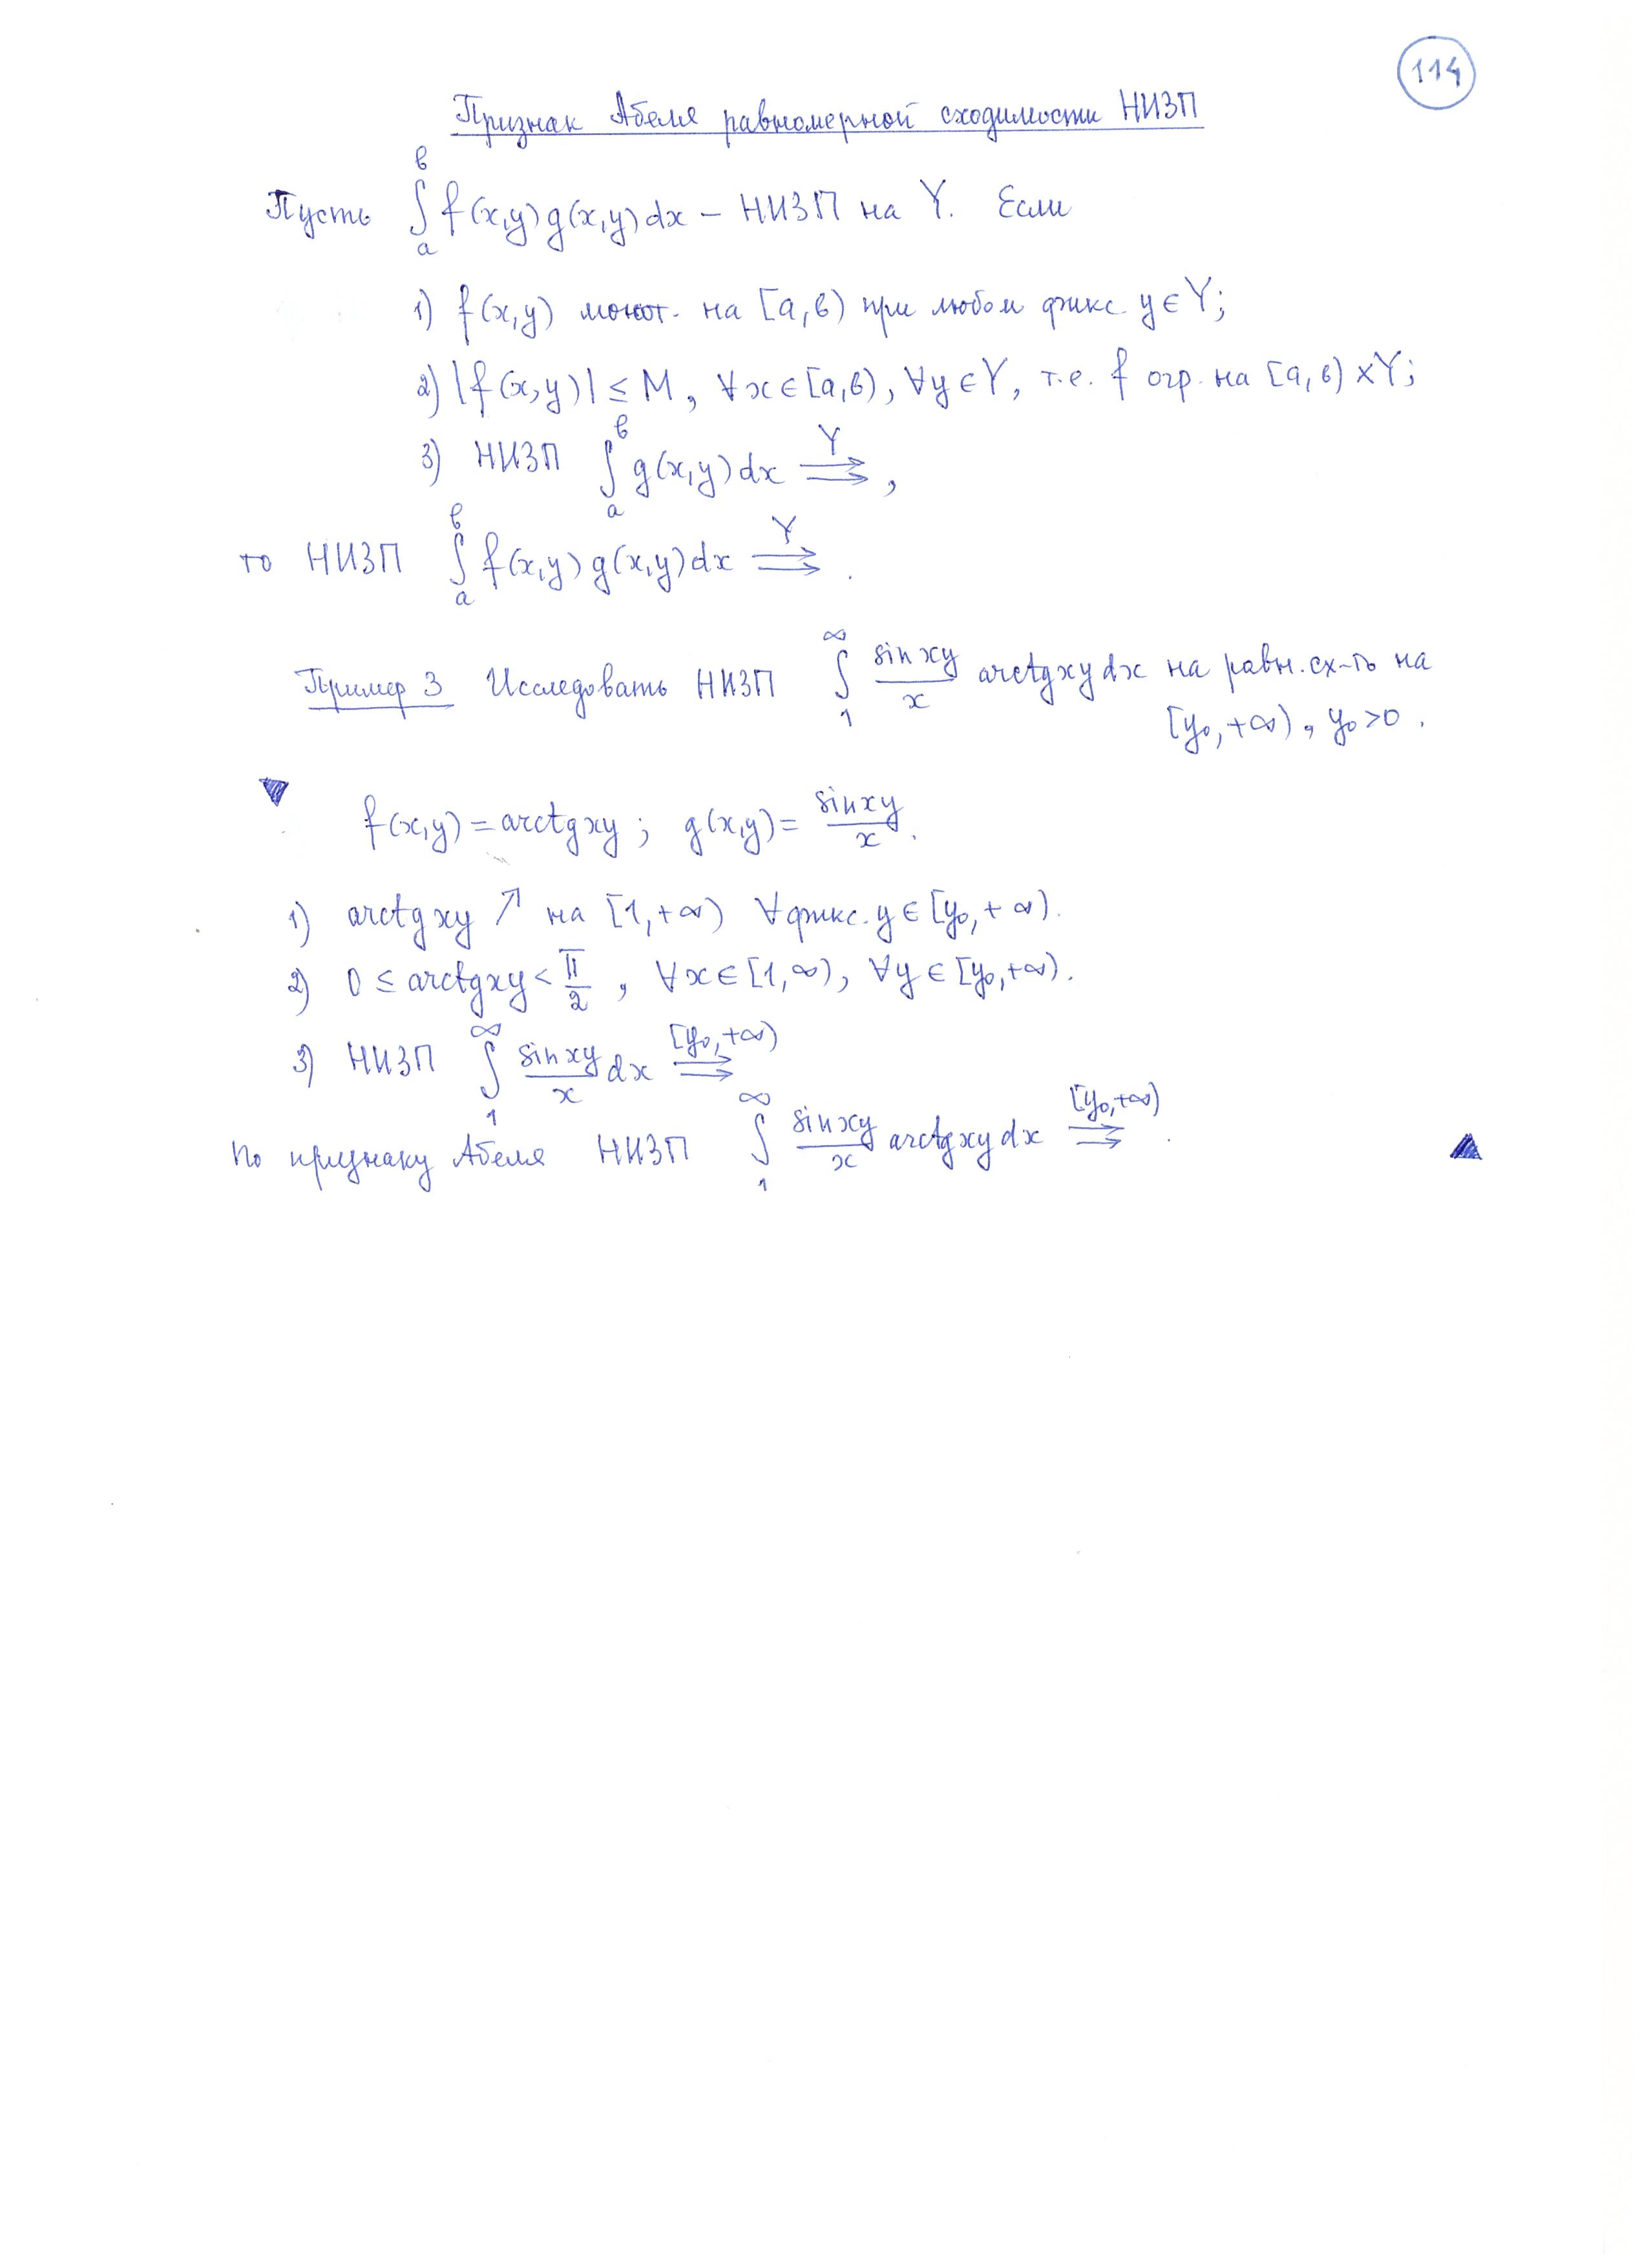 114
Признак Абеля равномерной сходимости НИЗП
Пусть ∫ₐᵇ f(x,y)g(x,y)dx – НИЗП на Y. Если
1) f(x,y) монот. на [a,b) при любом фикс. y∈Y;
2) |f(x,y)| ≤ M, ∀x∈[a,b), ∀y∈Y, т.е. f огр. на [a,b)×Y;
3) НИЗП ∫ₐᵇ g(x,y)dx ⇉^Y,
то НИЗП ∫ₐᵇ f(x,y)g(x,y)dx ⇉^Y.
Пример 3 Исследовать НИЗП ∫₁^∞ (sin xy)/x arctg xy dx на равн. сх-ть на
[y₀,+∞), y₀>0.
▼ f(x,y) = arctg xy ; g(x,y) = (sin xy)/x.
1) arctg xy ↗ на [1,+∞) ∀ фикс. y∈[y₀,+∞).
2) 0 ≤ arctg xy < π/2, ∀x∈[1,∞), ∀y∈[y₀,+∞).
3) НИЗП ∫₁^∞ (sin xy)/x dx ⇉^[y₀,+∞)
По признаку Абеля НИЗП ∫₁^∞ (sin xy)/x arctg xy dx ⇉^[y₀,+∞). ▲